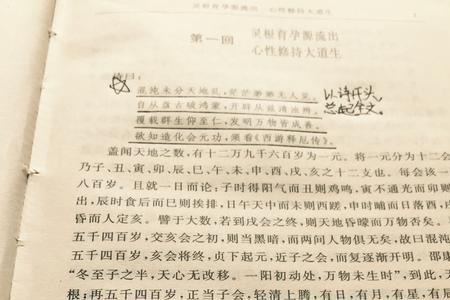 灵根育孕源流出 心性修持大道生
第一回
灵根育孕源流出
心性修持大道生
诗曰：
混沌未分天地乱，茫茫渺渺无人见。
自从盘古破鸿蒙，开辟从兹清浊辨。
覆载群生仰至仁，发明万物皆成善。
欲知造化会元功，须看《西游释厄传》。
以诗开头，
总起全文。
盖闻天地之数，有十二万九千六百岁为一元。将一元分为十二会，
乃子、丑、寅、卯、辰、巳、午、未、申、酉、戌、亥之十二支也。每会该一
八百岁。且就一日而论：子时得阳气而丑则鸡鸣，寅不通光而卯则
出，辰时食后而巳则挨排，日午天中而未则西蹉，申时晡而日落酉，戌
昏而人定亥。譬于大数，若到戌会之终，则天地昏曚而万物否矣。
五千四百岁，交亥会之初，则当黑暗，而两间人物俱无矣，故曰混沌
五千四百岁，亥会将终，贞下起元，近子之会，而复逐渐开明。邵康
“冬至子之半，天心无改移。一阳初动处，万物未生时”，到此，天
根；再五千四百岁，正当子会，轻清上腾，有日，有月，有星，有辰